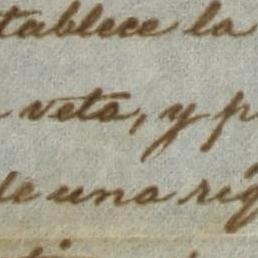 tablece la
veta, y p
de una rig